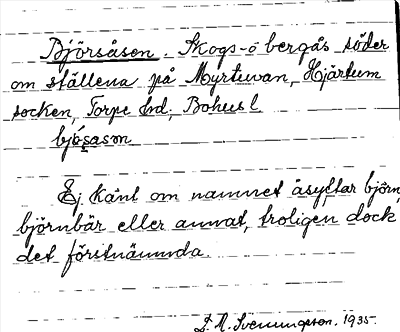 Björsåsen. Skogs- o bergås söder
om ställena på Myrtuvan, Hjärtum
socken, Torpe hd, Bohusl
bjö̀sasən
Ej känt om namnet åsyftar björn,
björnbär eller annat, troligen dock
det förstnämnda.
D. A. Svenungsson. 1935.